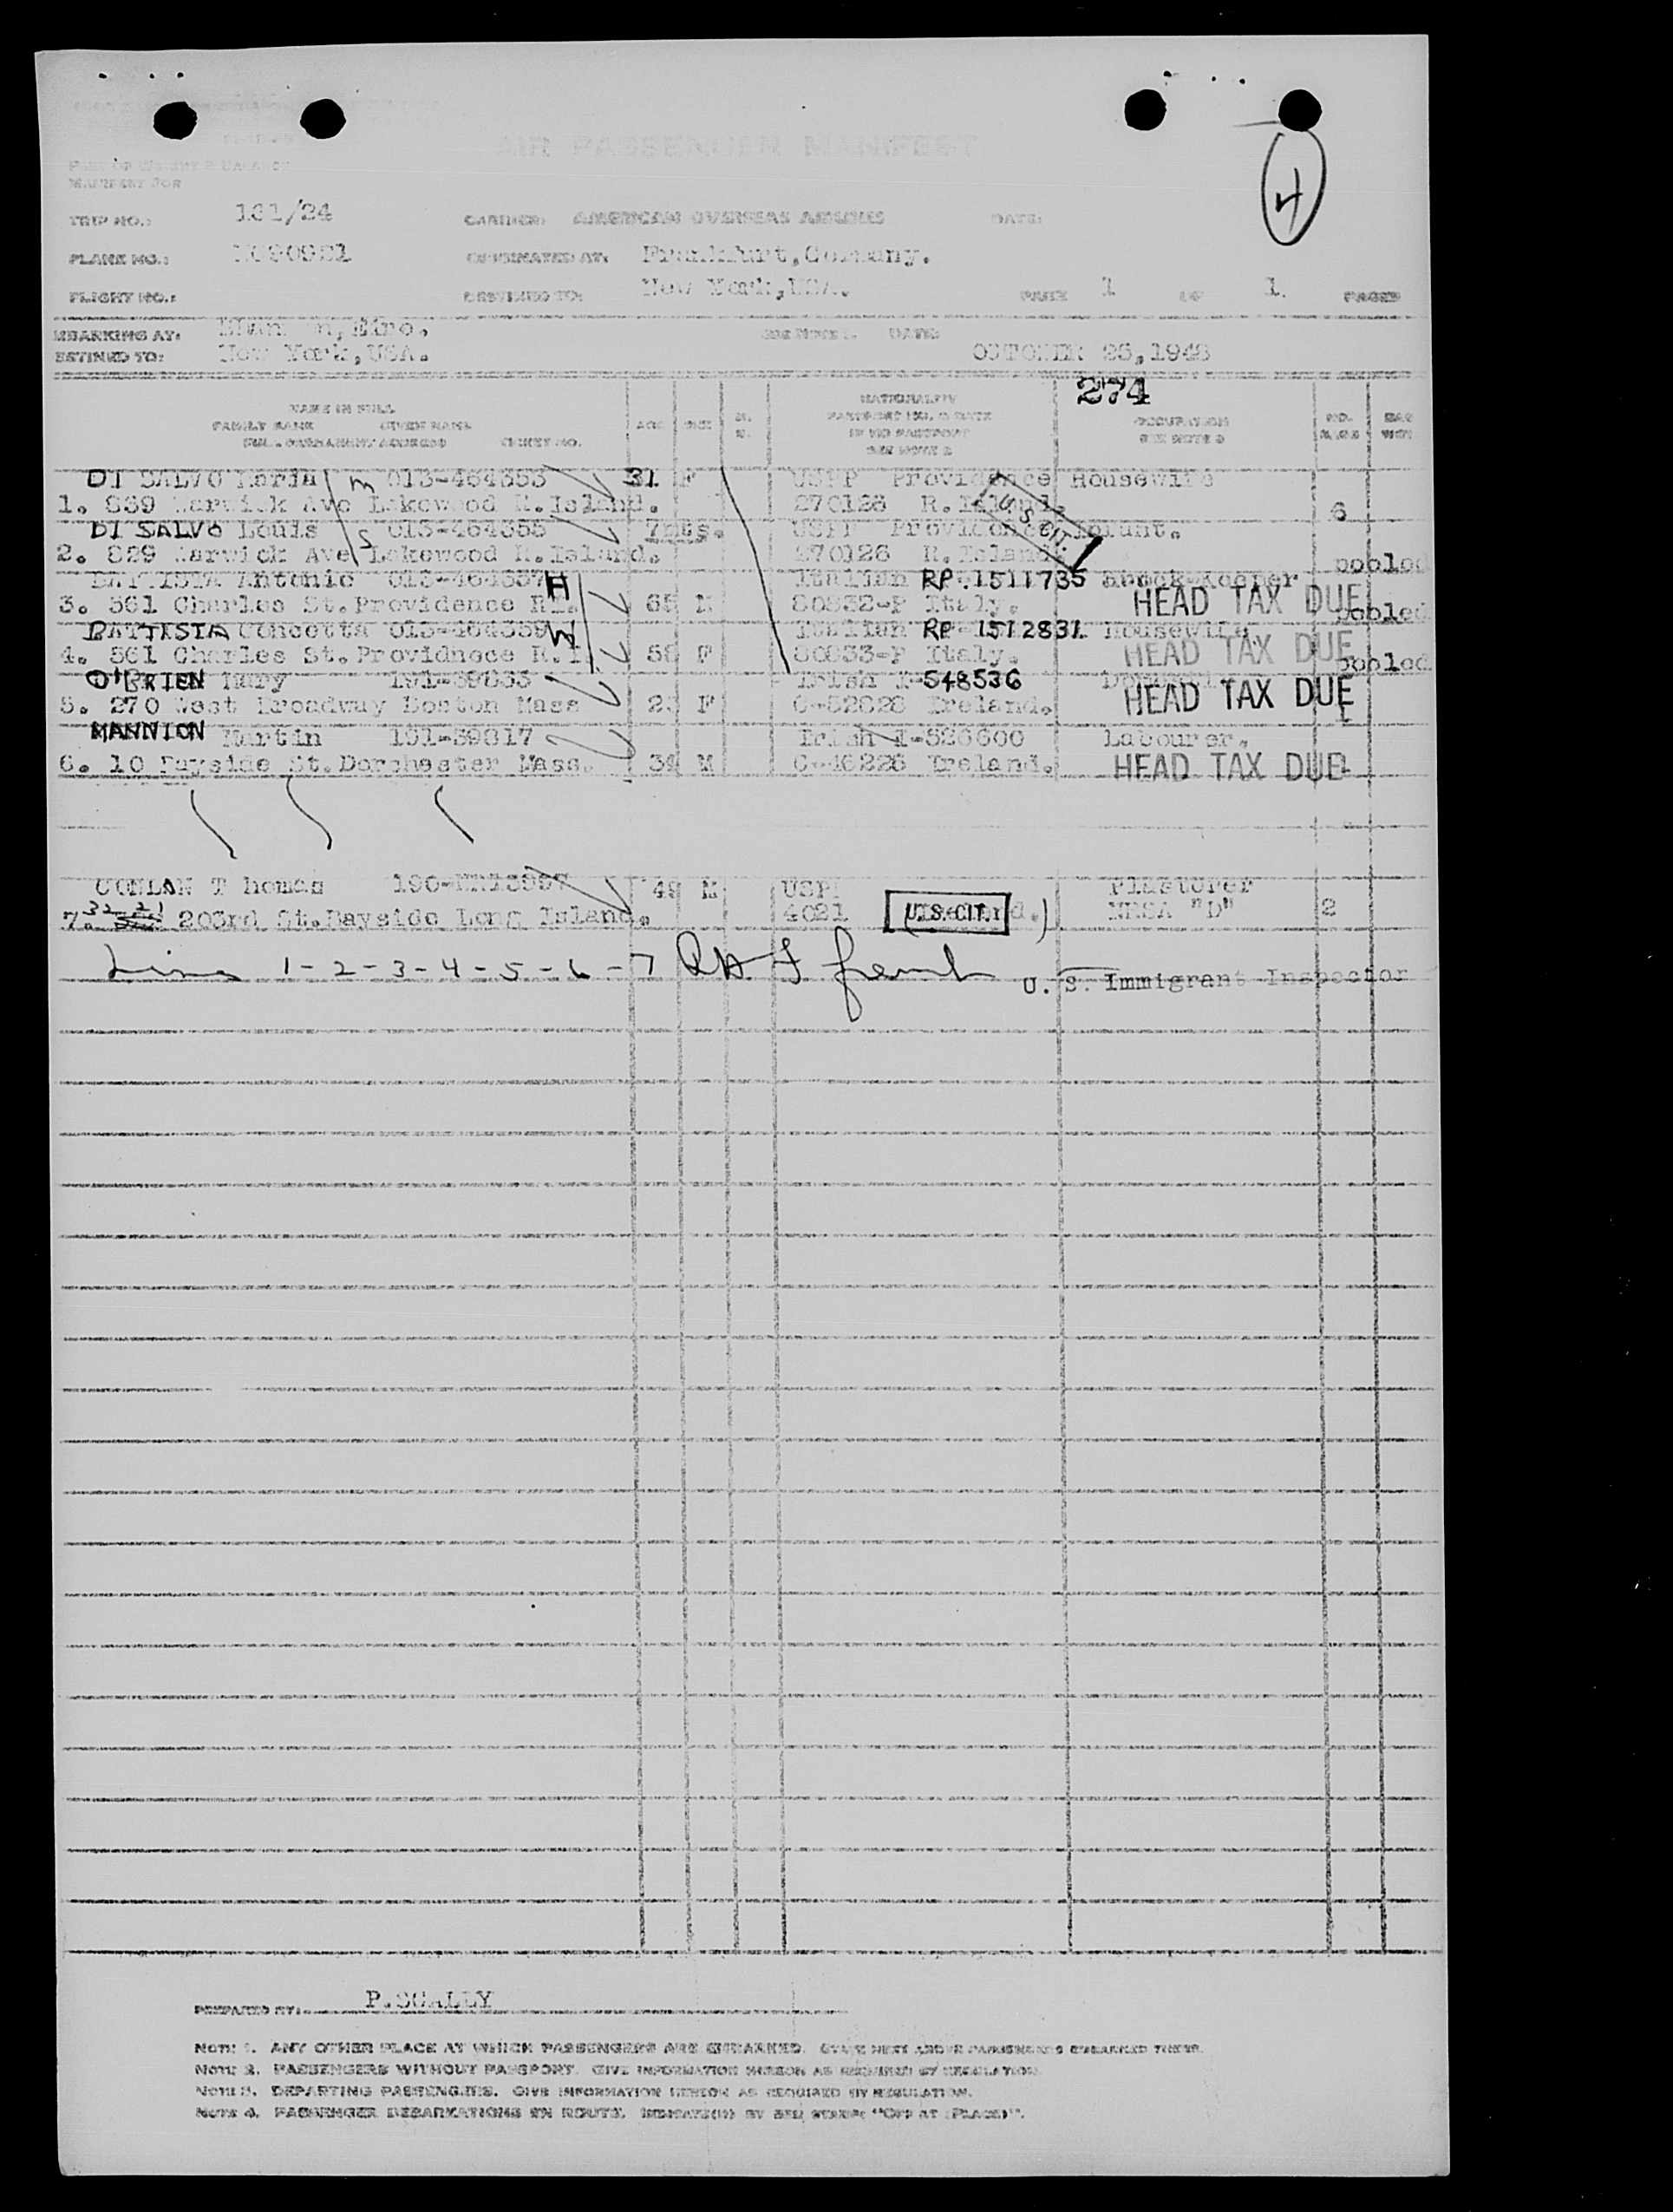 AIR PASSENGER MANIFEST
4
MANIFEST FOR
TRIP NO.: 131/24 CARRIER: AMERICAN OVERSEAS AIRLINES DATE:
PLANE NO.: ORIGINATED AT: Frankfurt, Germany.
FLIGHT NO.: DESTINED TO: New York, USA. PAGE 1 OF 1. PAGES
MBARKING AT: Eire. DATE
ESTINED TO: New York, USA. OCTOBER 25, 1948
274
NAME IN FULL NATIONALITY
FAMILY NAME GIVEN NAME AGE SEX OCCUPATION NO.
TICKET NO. SEE NOTE 2
DI SALVO Maria m 013-464353 31 F USPP Providence Housewife
1. 839 Warwick Ave Lakewood R.Island. 270126 R.Island. 6
DI SALVO Louis S 013-464355 7mts. USPP Providence
2. 829 Warwick Ave Lakewood R.Island. 270126 R.Island pooled
BATTISTA Antonio 013-464357 H Italian RP.1511735
3. 561 Charles St.Providence 65 M 80832-P Italy. HEAD TAX DUE pooled
BATTISTA Concetta 013-464359 W Italian RP 1512831 Housewife
4. 561 Charles St.Providnece R.I. 58 F 80833-P Italy. HEAD TAX DUE pooled
O'BRIEN Mary 191-39833 Irish I-548536
5. 270 West Broadway Boston Mass 23 F Ireland. HEAD TAX DUE
MANNION Martin 191-39817 Irish I-526600 Labourer.
6. 10 Bayside St.Dorchester Mass. 34 M Ireland. HEAD TAX DUE
CONLAN T homas 49 M USPP Plasterer
7. 32-21 203rd St.Bayside Long Island. 4021 U.S. CIT. NRSA "D" 2
Lines 1-2-3-4-5-6-7 U. S. Immigrant Inspector
PREPARED BY: P.SCALLY
NOTE 1. ANY OTHER PLACE AT WHICH PASSENGERS ARE EMBARKED. STATE NEXT ABOVE PASSENGERS EMBARKED THERE.
NOTE 2. PASSENGERS WITHOUT PASSPORT. GIVE INFORMATION HEREON AS REQUIRED BY REGULATION.
NOTE 3. DEPARTING PASSENGERS. GIVE INFORMATION HEREON AS REQUIRED BY REGULATION.
NOTE 4. PASSENGER DEBARKATIONS EN ROUTE. INDICATE(D) BY RED STAMP: "OFF AT (PLACE)".